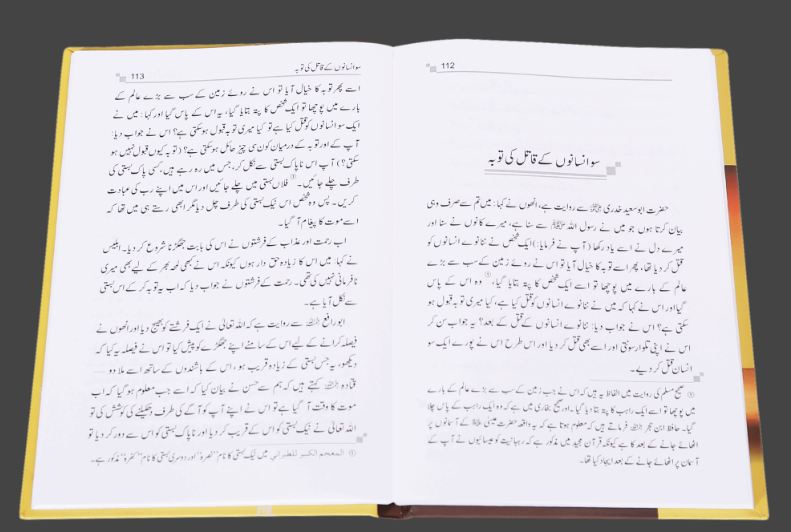 112
سو انسانوں کے قاتل کی توبہ
حضرت ابوسعید خدری ﷜ سے روایت ہے، انھوں نے کہا: میں تم سے صرف وہی
بیان کرتا ہوں جو میں نے رسول اللہ ﷺ سے سنا ہے، میرے کانوں نے سنا اور
میرے دل نے اسے یاد رکھا (آپ نے فرمایا:) ایک شخص نے ننانوے انسانوں کو
قتل کر دیا تھا، پھر اسے توبہ کا خیال آیا تو اس نے روئے زمین کے سب سے بڑے
عالم کے بارے میں پوچھا تو اسے ایک شخص کا پتہ بتایا گیا،① وہ اس کے پاس
گیا اور اس نے کہا کہ میں نے ننانوے انسانوں کو قتل کیا ہے، کیا میری توبہ قبول ہو
سکتی ہے؟ اس نے جواب دیا: ننانوے انسانوں کے قتل کے بعد؟ یہ جواب سن کر
اس نے اپنی تلوار سونتی اور اسے بھی قتل کر دیا اور اس طرح اس نے پورے ایک سو
انسان قتل کر دیے۔
① صحیح مسلم کی روایت میں الفاظ یہ ہیں کہ اس نے جب زمین کے سب سے بڑے عالم کے بارے
میں پوچھا تو اسے ایک راہب کا پتہ بتا دیا گیا۔ اور صحیح بخاری میں ہے کہ وہ ایک راہب کے پاس چلا
گیا۔ حافظ ابن حجر فرماتے ہیں کہ معلوم ہوتا ہے کہ یہ واقعہ حضرت عیسیٰ کے آسمانوں پر
اٹھائے جانے کے بعد کا ہے کیونکہ قرآن مجید میں مذکور ہے کہ رہبانیت کو عیسائیوں نے آپ کے
آسمان پر اٹھائے جانے کے بعد ایجاد کیا تھا۔
سو انسانوں کے قاتل کی توبہ
113
اسے پھر توبہ کا خیال آیا تو اس نے روئے زمین کے سب سے بڑے عالم کے
بارے میں پوچھا تو ایک شخص کا پتہ بتایا گیا، یہ اس کے پاس گیا اور کہا: میں نے
ایک سو انسانوں کو قتل کیا ہے تو کیا میری توبہ قبول ہوسکتی ہے؟ اس نے جواب دیا:
آپ کے اور توبہ کے درمیان کون سی چیز حائل ہوسکتی ہے؟ (توبہ کیوں قبول نہیں ہو
سکتی؟) آپ اس ناپاک بستی سے نکل کر، جس میں رہ رہے ہیں، کسی پاک بستی کی
طرف چلے جائیں۔① فلاں بستی میں چلے جائیں اور اس میں اپنے رب کی عبادت
کریں۔ پس وہ شخص اس نیک بستی کی طرف چل دیا مگر ابھی رستے ہی میں تھا کہ
اسے موت کا پیغام آ گیا۔
اب رحمت اور عذاب کے فرشتوں نے اس کی بابت جھگڑنا شروع کر دیا۔ ابلیس
نے کہا: میں اس کا زیادہ حق دار ہوں کیونکہ اس نے کبھی لمحہ بھر کے لیے بھی میری
نافرمانی نہیں کی تھی۔ رحمت کے فرشتوں نے جواب دیا کہ اب یہ توبہ کر کے اس بستی
سے نکل آیا ہے۔
ابو رافع سے روایت ہے کہ اللہ تعالیٰ نے ایک فرشتے کو بھیج دیا اور انھوں نے
فیصلہ کرانے کے لیے اس کے سامنے اپنے جھگڑے کو پیش کیا تو اس نے فیصلہ یہ کیا کہ
دیکھو، یہ جس بستی کے زیادہ قریب ہو، اس کے باشندوں کے ساتھ اسے ملا دو
قتادہ کہتے ہیں کہ ہم سے حسن نے بیان کیا کہ اسے جب معلوم ہو گیا کہ اب
موت کا وقت آ گیا ہے تو اس نے اپنے آپ کو آگے کی طرف دھکیلنے کی کوشش کی تو
اللہ تعالیٰ نے نیک بستی کو اس کے قریب کر دیا اور ناپاک بستی کو اس سے دور کر دیا تو
① المعجم الكبير للطبراني میں نیک بستی کا نام "نصرۃ" اور دوسری بستی کا نام "کفرۃ" مذکور ہے۔